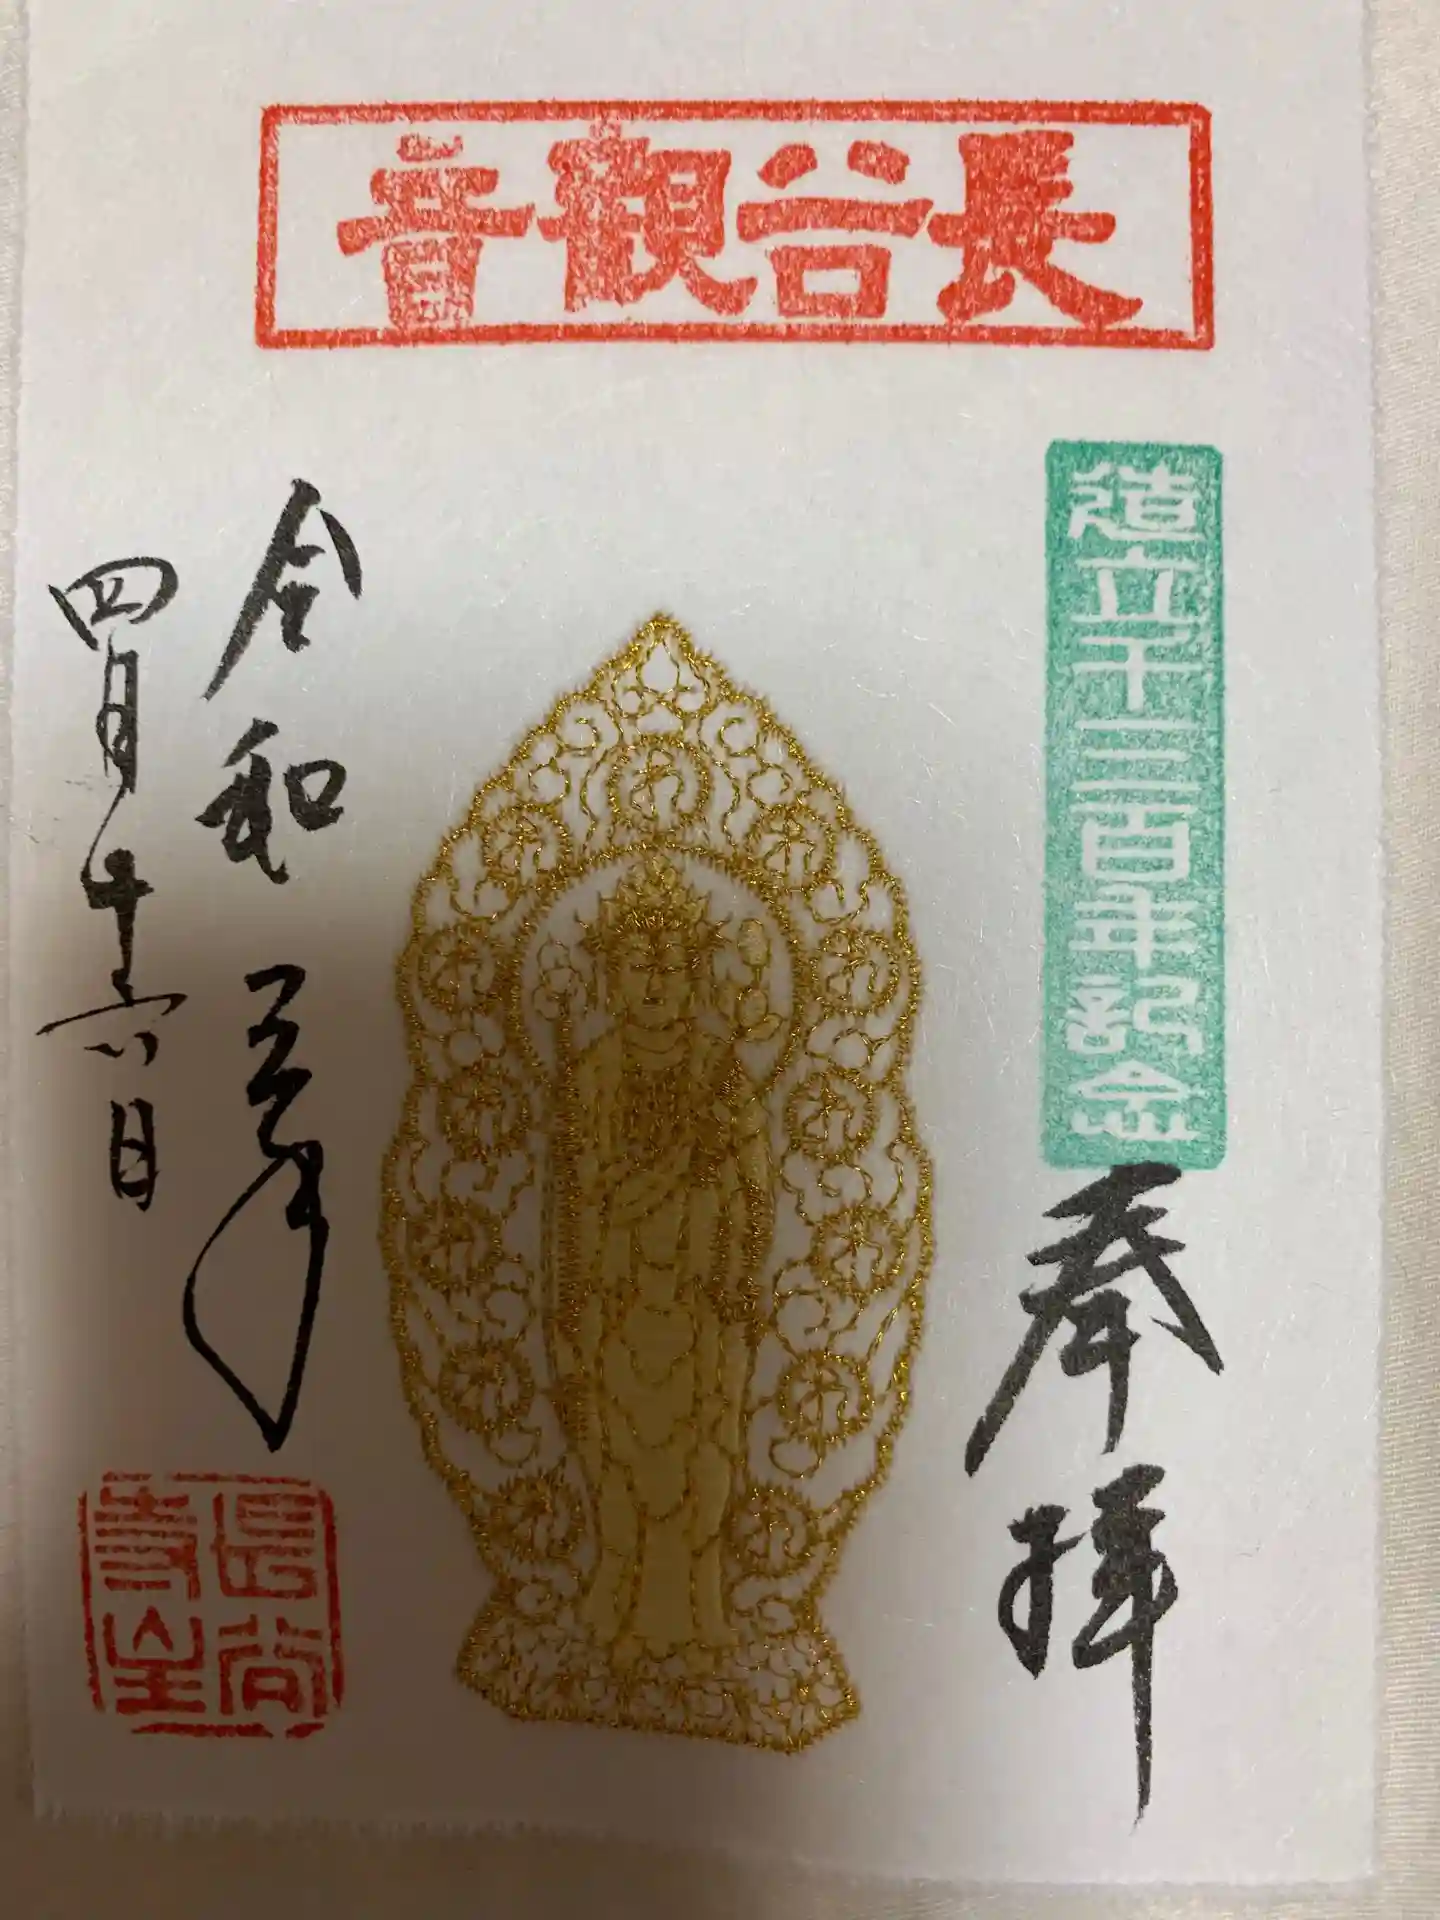 長谷觀音
造立千三百年記念
奉拝
令和三年
四月十六日